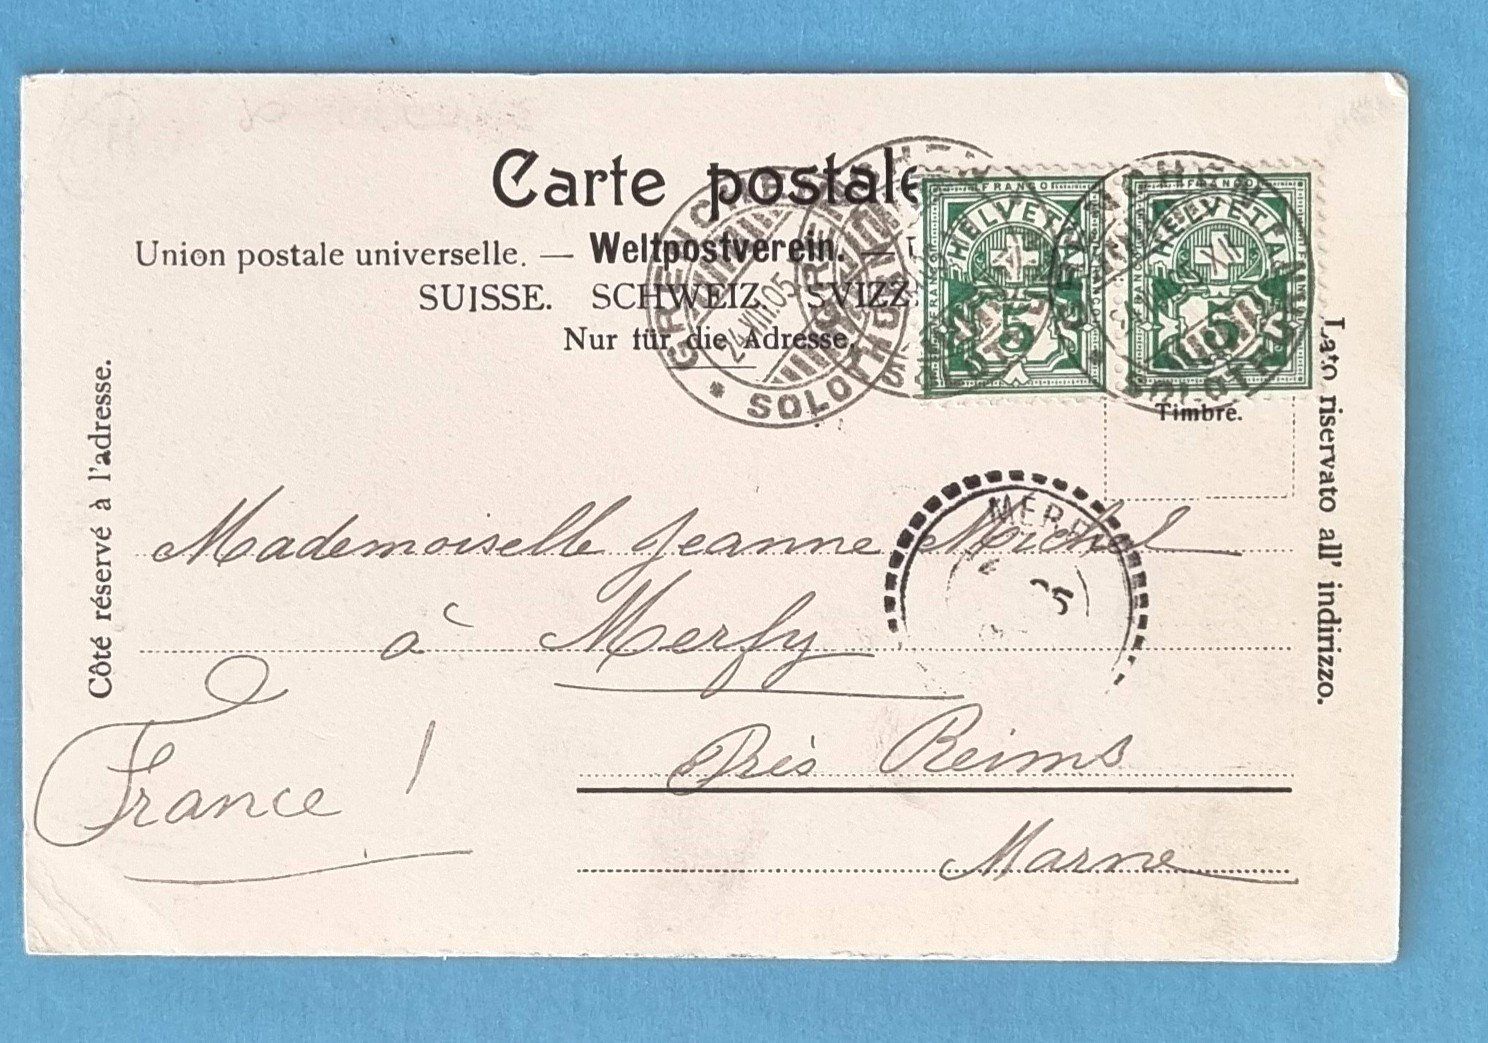 Carte postale
Union postale universelle. — Weltpostverein. —
SUISSE. SCHWEIZ. SVIZZ
Nur für die Adresse.
GRENCHEN
24.VIII.05
SOLOTHURN
FRANCO
HELVETIA
5
FRANCO
HELVETIA
5
GRENCHEN
XII
SOLOTHURN
Timbre.
Côté réservé à l'adresse.
Lato riservato all' indirizzo.
MERF
05
Mademoiselle Jeanne Michel
à Merfy
Près Reims
France !
Marne